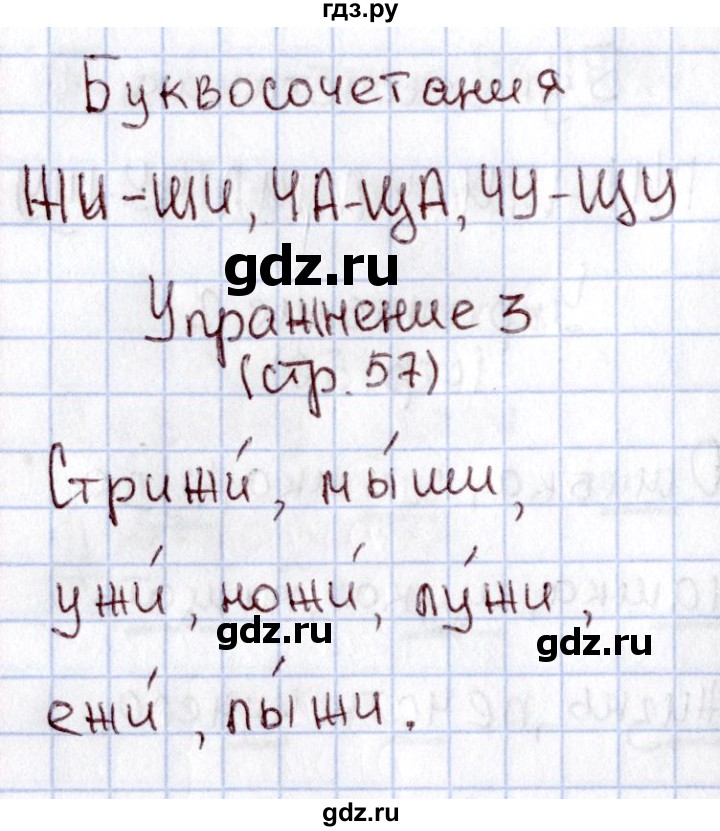 гдз.ру
Буквосочетания
ЖИ-ШИ, ЧА-ЩА, ЧУ-ЩУ
gdz.ru
Упражнение 3
(стр. 57)
Стрижи́, мы́ши,
ужи́, ножи́, лу́жи,
gdz.ru
gdz.ru
ежи́, лы́жи.
gdz.ru